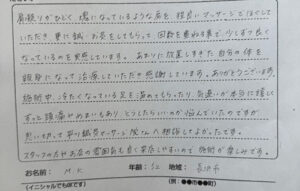 肩凝りがひどく 塊になっているような肩を 程良いマッサージでほぐして
いただき、更に鍼・お灸をしてもらって 回数を重ねる事で 少しずつ良く
なっているのを実感しています。 あまりに放置しすぎた自分の体を
親身になって 治療していただき感謝しています。ありがとうございます。
施術中、冷たくなっている足を温めてもらったり 気遣いが本当に嬉しく
ずっと頭痛やめまいもあり どうしたらいいのか悩んでいたのですが
思い切って 鍼灸マッサージ院さんへ相談してよかったです。
スタッフの方やお店の雰囲気も良く 来店しやすいので 施術が楽しみです。
お名前： M K 年齢： 52 地域： 長浜市
（イニシャルでも可です） （例：●●市●●町）